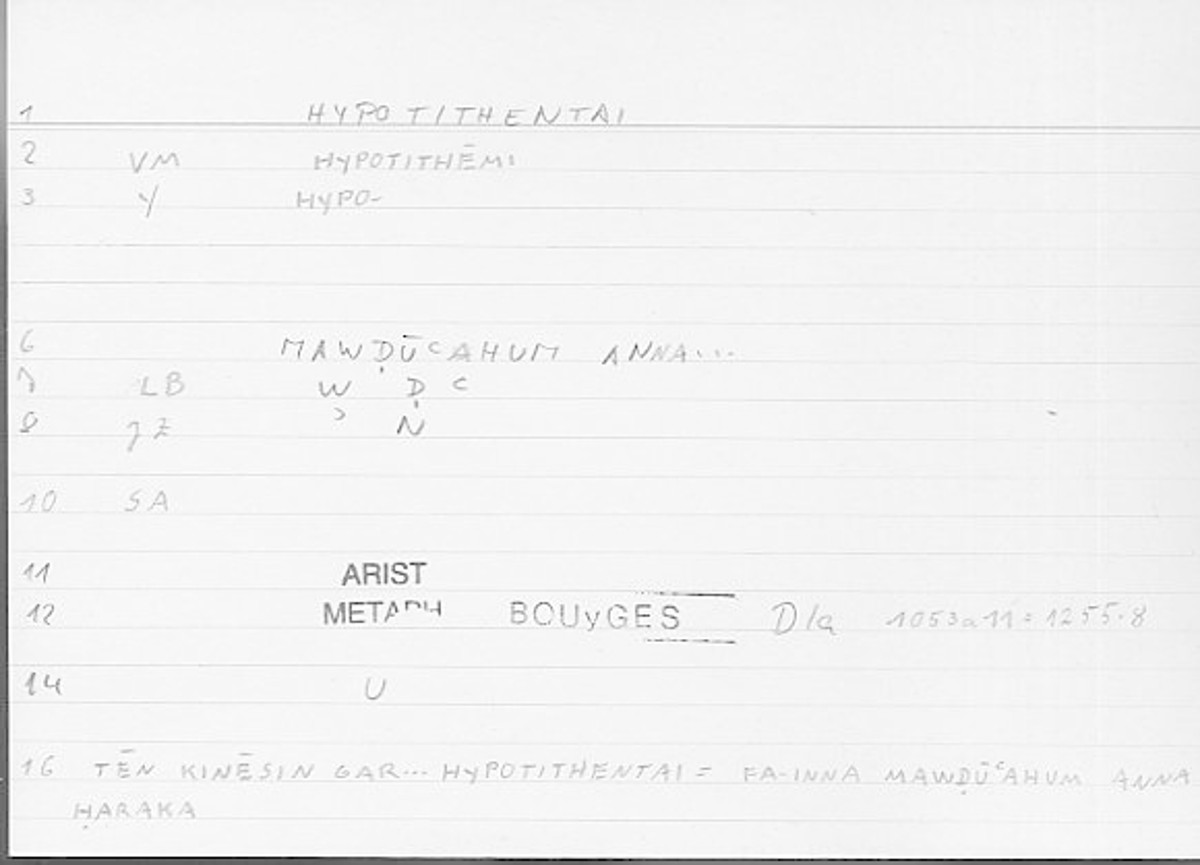 1 HYPOTITHENTAI
2 VM HYPOTITHĒMI
3 Y HYPO-
6 MAWḌŪʿAHUM ANNA...
7 LB W Ḍ ʿ
8 JZ ʾ Ṅ
10 SA
11 ARIST
12 METAPH BOUyGES Dla 1053a11 = 1255.8
14 U
16 TĒN KINĒSIN GAR... HYPOTITHENTAI = FA-INNA MAWḌŪʿAHUM ANNA
ḤARAKA